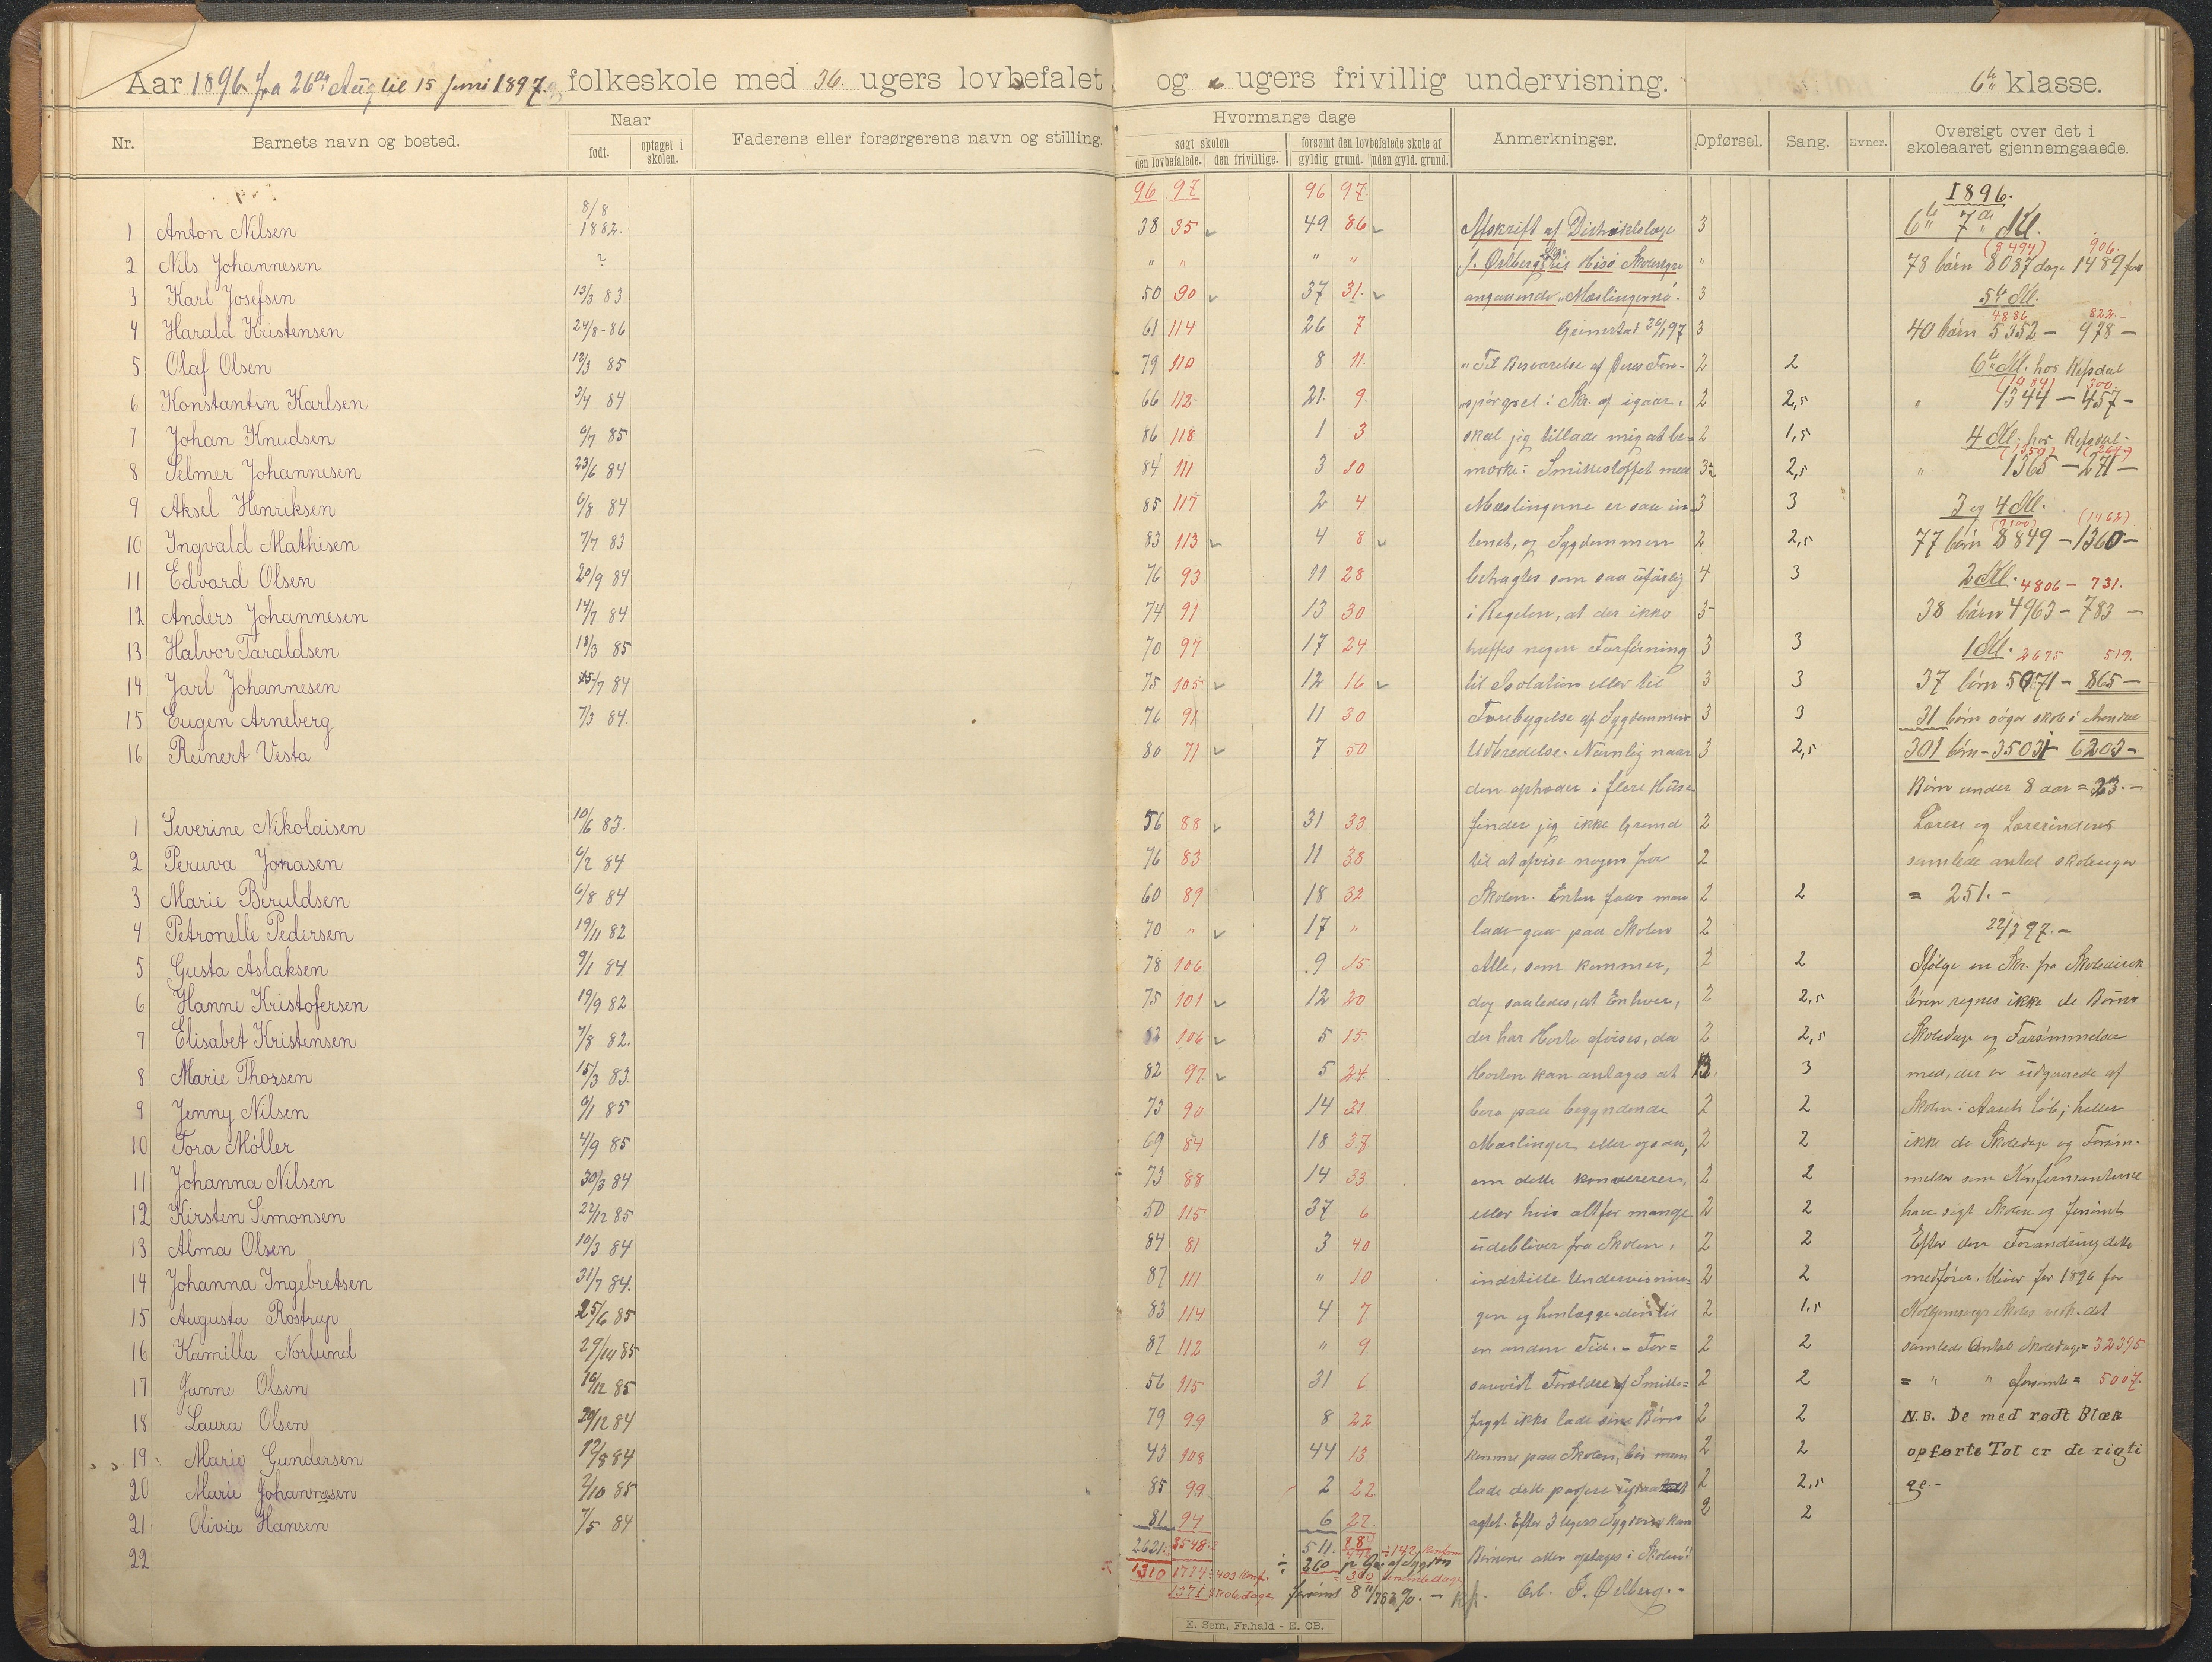 Aar 1896 fra 26de Aug til 15 Juni 1897. folkeskole med 36. ugers lovbefalet og ugers frivillig undervisning. 6te klasse.
Nr. Barnets navn og bosted. Naar født. optaget i skolen. Faderens eller forsørgerens navn og stilling. Hvormange dage søgt skolen den lovbefalede. den frivillige. forsømt den lovbefalede skole af gyldig grund. uden gyld. grund. Anmerkninger. Opførsel. Sang. Evner. Oversigt over det i skoleaaret gjennemgaaede.
96 97 96 97.
1 Anton Nilsen 8/8 1882. 38 35 49 86 3
2 Nils Johannesen ? " " " " "
3 Karl Josefsen 13/3 83 50 90 37 31. 3
4 Harald Kristensen 24/8-86 61 114 26 7 3
5 Olaf Olsen 12/3 85 79 110 8 11. 2 2
6 Konstantin Karlsen 3/4 84 66 112 21. 9 2 2,5
7 Johan Knudsen 6/7 85 86 118 1 3 2 1,5
8 Selmer Johannesen 23/6 84 84 111 3 10 2,5
9 Aksel Henriksen 6/8 84 85 117 2 4 3 3
10 Ingvald Mathisen 7/7 83 83 113 4 8 2 2,5
11 Edvard Olsen 20/9 84 76 93 11 28 4 3
12 Anders Johannesen 14/7 84 74 91 13 30
13 Halvor Taraldsen 18/3 85 70 97 17 24 3 3
14 Jarl Johannesen 25/7 84 75 105 12 16 3 3
15 Eugen Arneberg 7/3 84. 76 91 11 30 3 3
16 Reinert Vesta 80 71 7 50 3 2,5
1 Severine Nikolaisen 10/6 83. 56 88 31 33 2
2 Peruva Jonasen 6/2 84 76 83 11 38 2
3 Marie Beruldsen 6/8 84 60 89 18 32 2 2
4 Petronelle Pedersen 19/11 82 70 " 17 " 2
5 Gusta Aslaksen 9/1 84 78 106 9 15 2 2
6 Hanne Kristofersen 19/9 82 75 101 12 20 2 2,5
7 Elisabet Kristensen 7/8 82. 106 5 15 2 2,5
8 Marie Thorsen 15/3 83. 82 97 5 24 3
9 Jenny Nilsen 6/1 85 73 90 14 31 2 2
10 Tora Møller 4/9 85 69 84 18 37 2 2
11 Johanna Nilsen 30/3 84 73 88 14 33 2 2
12 Kirsten Simonsen 22/12 85 50 115 37 6 2 2
13 Alma Olsen 10/3 84 84 81 3 40 2 2
14 Johanna Ingebretsen 31/7 84. 87 111 " 10 2 2
15 Augusta Rostrup 25/6 85 83 114 4 7 2 1,5
16 Kamilla Norlund 29/10 85 87 112 " 9 2 2
17 Janne Olsen 10/12 85 56 115 31 6 2 2
18 Laura Olsen 20/12 84 79 99 8 22 2 2
19 Marie Gundersen 12/8 84 43 108 44 13 2 2
20 Marie Johannesen 2/10 85 85 99 2 22 2 2,5
21 Olivia Hansen 7/5 84 81 94 6 27. 2 2
22
2621 3548 511.
1310 1774 403 Konf. 260
1371 skoledage forsømt
E. Sem, Fr.hald - E. CB.
Afskrift af Distriktslæge
J. Ørlbergs Skr. til Hisø Skolestyre
angaaende "Mæslingerne".
Grimstad 20/1 97
"Til Besvarelse af Deres Fore-
"spørgsel i Skr. af igaar,
skal jeg tillade mig at be-
mærke: Smittestoffet med
Mæslingerne er saa in-
tenst, og Sygdommen
betragtes som saa ufarlig
i Regelen, at der ikke
træffes nogen Forføining
til Isolation eller til
Forebygelse af Sygdommens
Udbredelse. Navnlig naar
den optræder i flere Huse
finder jeg ikke Grund
til at afvise nogen fra
Skolen. Enten faar man
lade gaa paa Skolen
Alle, som kommer,
dog saaledes, at Enhver,
der har Hoste afvises, da
Hosten kan antages at
bero paa begyndende
Mæslinger eller ogsaa,
om dette
eller hvis altfor mange
udebliver fra Skolen,
indstille Undervisnin-
gen og henlægge den til
en anden Tid. - For=
saavidt Forældre af Smitte=
frygt ikke lade sine Børn
komme paa Skolen, bør man
lade dette passere
agtet. Efter 3 Ugers Sygdom kan
Børnene atter optages i Skolen"
Erb. J. Ørlberg. -
1896.
6te 7de Kl.
(8494) 906.
78 børn 8087 dage 1489 fors
5te Kl.
4886 822.
40 børn 5352 - 978 -
6te Kl. hos Refsdal
300
" 1344 - 457 -
4 Kl. hos Refsdal -
" 1365 - 271 -
3 og 4 Kl.
(9100) (1462)
77 børn 8849 - 1360 -
2 Kl. 4806 - 731.
38 børn 4963 - 783 -
1 Kl. 2675 519.
37 børn 5071 - 865 -
31 børn søger skole i Arendal
301 børn - 35031 6203 -
Børn under 8 aar = 23. -
Lærere og Lærerinders
samlede antal skoleuger
= 251. -
22/3 97. -
Ifølge en Skr. fra Skoledirek
tøren regnes ikke de Børns
Skoledage og Forsømmelser
med, der er udgaaede af
Skolen i Aarets Løb; heller
ikke de Skoledage og Forsøm-
melser som Konfirmanterne
have søgt Skolen og forsømt
Efter den Forandring dette
medfører, bliver for 1896 for
Skoles vedk. det
samlede Antal Skoledage = 32395
= " " forsømte = 5007.
N.B. De med rødt Blæk
opførte Tal er de rigti
ge. -